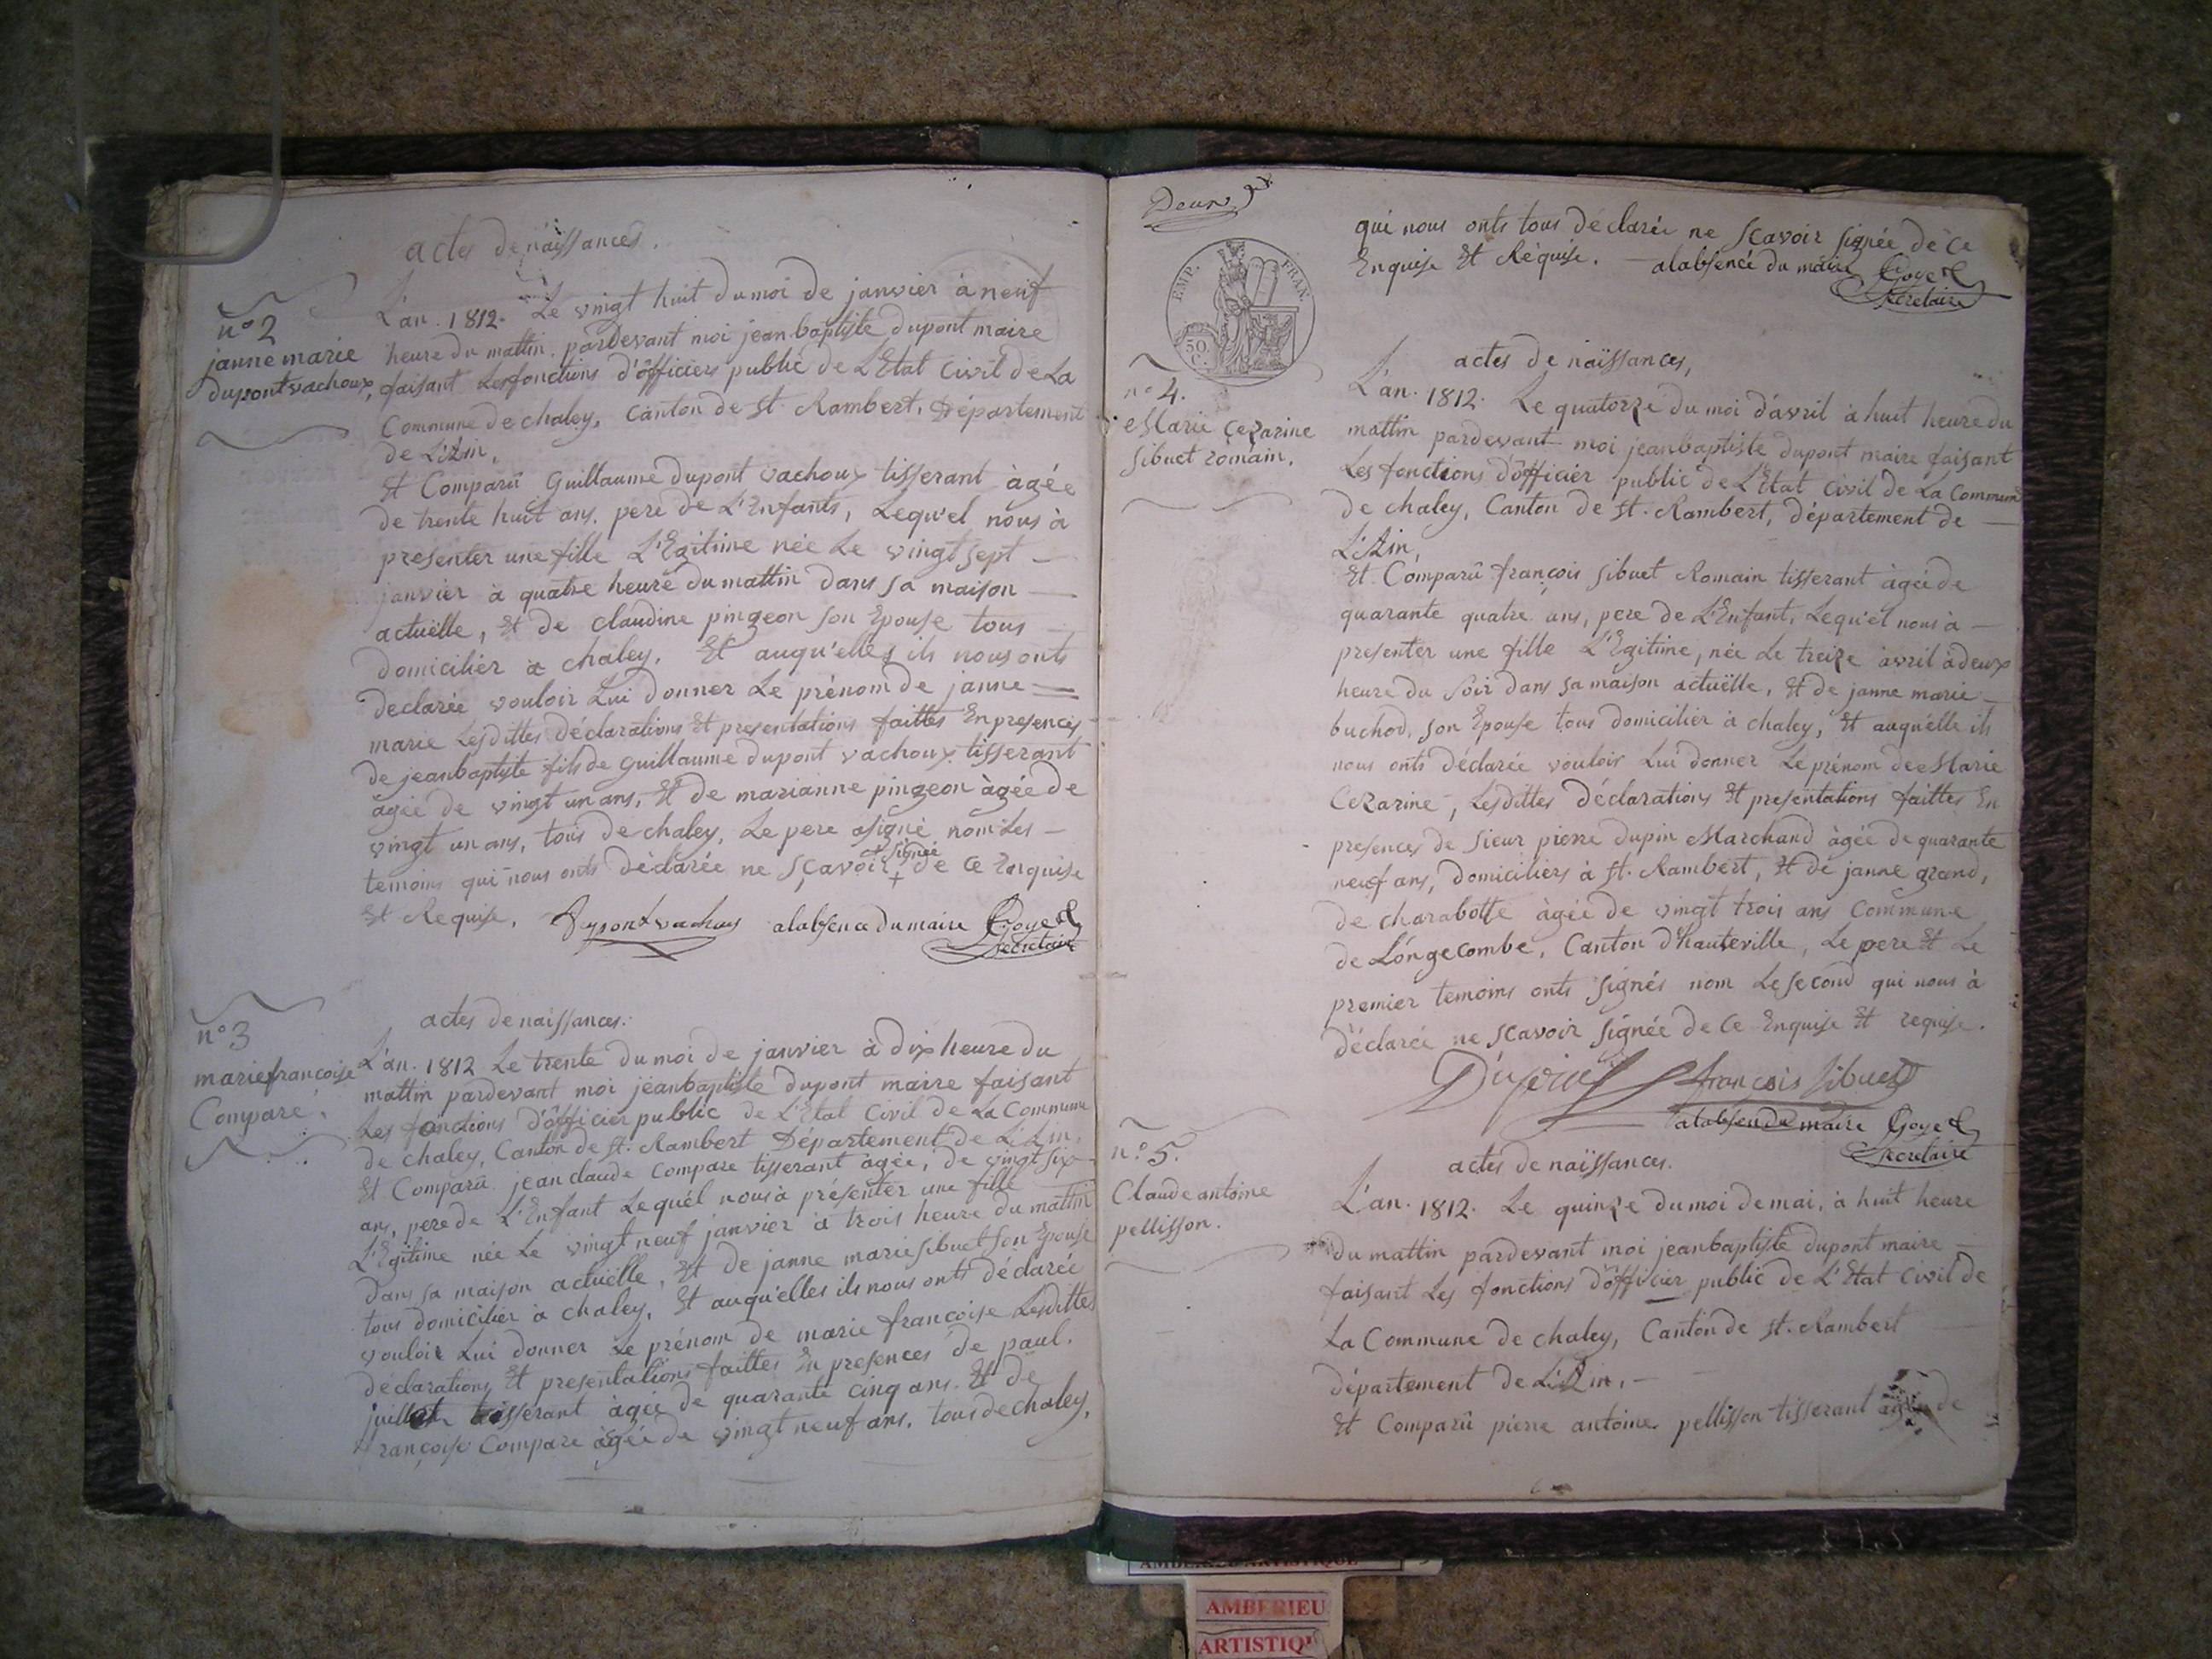 actes de naissances.
n° 2
janne marie
dupont vachoux,
L'an. 1812. Le vingt huit du moi de janvier à neuf
heure du mattin. pardevant moi jean baptiste dupont maire
faisant les fonctions d'officiers public de L'Etat Civil de La
Commune de chaley, Canton de St. Rambert, Département
de L'Ain,
Et Comparû Guillaume dupont vachoux tisserant àgée
de trente huit ans, pere de L'Enfants, Lequ'el nous à
presenter une fille L'Egitime née Le vingt sept
janvier à quatre heure du mattin dans sa maison
actuëlle, Et de claudine pingeon son Epouse tous
domicilier à chaley, Et auqu'elles ils nous onts
declarée vouloir Lui donner Le prénom de janne =
marie Lesdittes déclarations Et presentations faittes En presences
de jeanbaptiste fils de Guillaume dupont vachoux tisserant
âgée de vingt un ans, Et de marianne pingeon àgée de
vingt un ans, tous de chaley, Le pere a signé nom Les
temoins qui nous onts déclarée ne sçavoir + de ce Enquise
+ signée
Et Requise, Dupont vachoux alabsence du maire Goyet
Secretaire
n° 3
marie francoise
Compare.
actes de naissances.
L'an. 1812 Le trente du moi de janvier à dix heure du
mattin pardevant moi jeanbaptiste dupont maire faisant
Les fonctions d'officier public de L'Etat Civil de La Commune
de chaley, Canton de St. Rambert Département de L'Ain,
Et Comparû jean claude Compare tisserant agée, de vingt six
ans, pere de L'Enfant Lequél nous à présenter une fille
L'Egitime née Le vingt neuf janvier à trois heure du mattin
dans sa maison actuëlle, Et de janne marie sibuet son Epouse
tous domicilier à chaley, Et auqu'elles ils nous onts déclarée
vouloir Lui donner Le prénom de marie francoise Lesdittes
déclarations Et presentations faittes En presences de paul.
juillet tisserant àgée de quarante cinq ans. Et de
françoise Compare àgée de vingt neuf ans. tous de chaley,
Deux
EMP. FRAN.
50.
C.
qui nous onts tous déclarée ne scavoir signée de ce
Enquise Et Réquise. alabsence du maire Goyet
Secretaire
n° 4.
Marie Cezarine
sibuet romain.
actes de naïssances,
L'an. 1812. Le quatorze du moi d'avril à huit heure du
mattin pardevant moi jeanbaptiste dupont maire faisant
Les fonctions d'officier public de L'Etat Civil de La Commune
de chaley, Canton de St. Rambert, département de
L'Ain,
Et Comparû françois sibuet Romain tisserant àgée de
quarante quatre ans, pere de L'Enfant, Lequ'él nous à
presenter une fille L'Egitime, née Le treize avril à deux
heure du soir dans sa maison actuëlle, Et de janne marie
buchod, son Epouse tous domicilier à chaley, Et auqu'élle ils
nous onts déclarée vouloir Lui donner Le prénom de Marie
Cezarine, Lesdittes déclarations Et presentations faittes En
presences de sieur pierre dupin Marchand àgée de quarante
neuf ans, domiciliers à St. Rambert, Et de janne grand,
de charabotte àgée de vingt trois ans Commune
de Longecombe, Canton d'hauteville, Le pere Et Le
premier temoins onts signés nom Le second qui nous à
déclarée ne scavoir signée de ce Enquise Et requise.
Dupin françois sibuet
alabsen du maire Goyet
Secretaire
n° 5.
Claude antoine
pellisson.
actes de naïssances.
L'an. 1812. Le quinze du moi de mai, à huit heure
du mattin pardevant moi jeanbaptiste dupont maire
faisant Les fonctions d'officier public de L'Etat Civil de
La Commune de chaley, Canton de St. Rambert
département de L'Ain,
Et Comparû pierre antoine pellisson tisserant àgée de
AMBERIEU ARTISTIQUE
AMBERIEU
ARTISTIQU